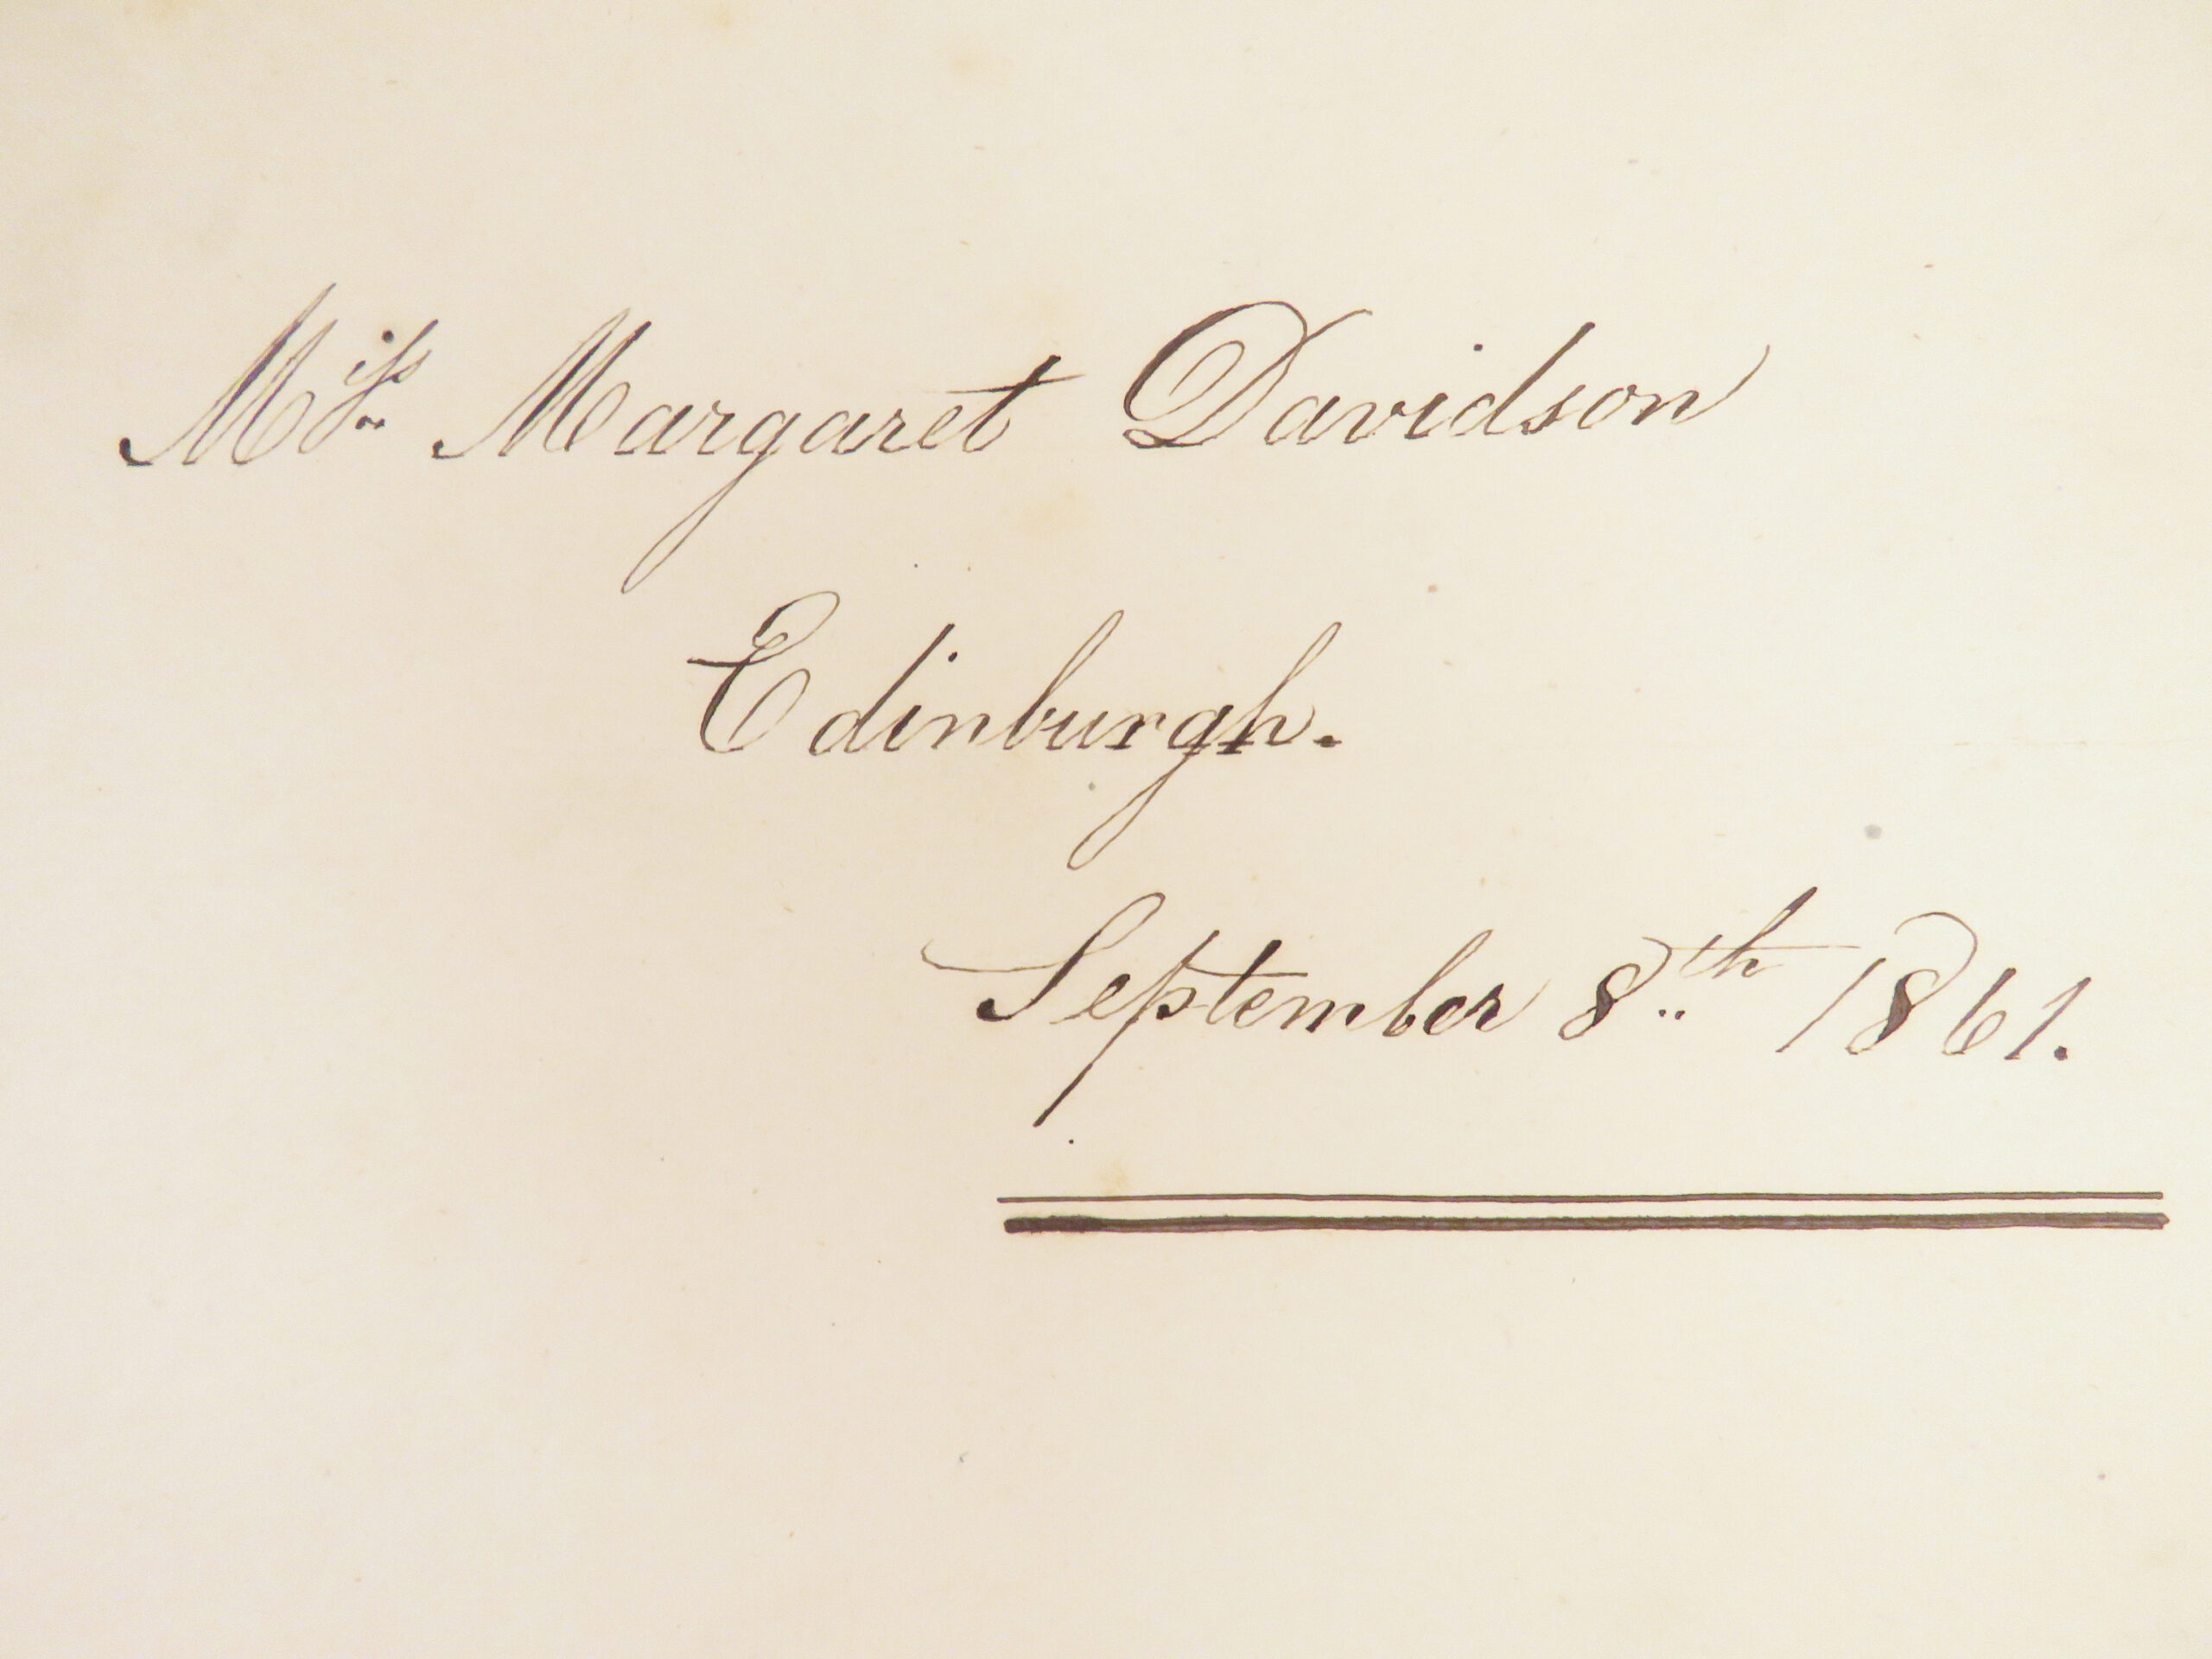 Miſs Margaret Davidson
Edinburgh.
September 8th 1861.